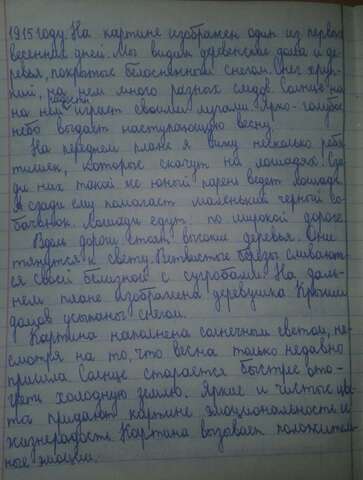 1915 году. На картине изображен один из первых
весенних дней. Мы видим деревенские дома и де-
ревья, покрытые белоснежным снегом. Снег хруп-
кий, на нем много разных следов. Солнце
на нем радостно играет своими лучами. Ярко-голубое
небо выдает наступающую весну.
На переднем плане я вижу несколько ребя
тишек, которые скачут на лошадях. Сре
ди них такой же юный парень ведет лошадь.
А сзади ему помогает маленький черный со-
бачонок. Лошади едут по широкой дороге
Вдоль дороги стоят высокие деревья. Они
тянутся к свету. Ветвистые березы сливают-
ся своей белизной с сугробами. На даль-
нем плане изображена деревушка. Крыши
домов усыпаны снегом.
Картина наполнена солнечным светом, не-
смотря на то, что весна только недавно
пришла. Солнце старается быстрее ото-
греть холодную землю. Яркие и чистые цве
та придают картине эмоциональность и
жизнерадость. Картина вызывает положитель-
ные эмоции.